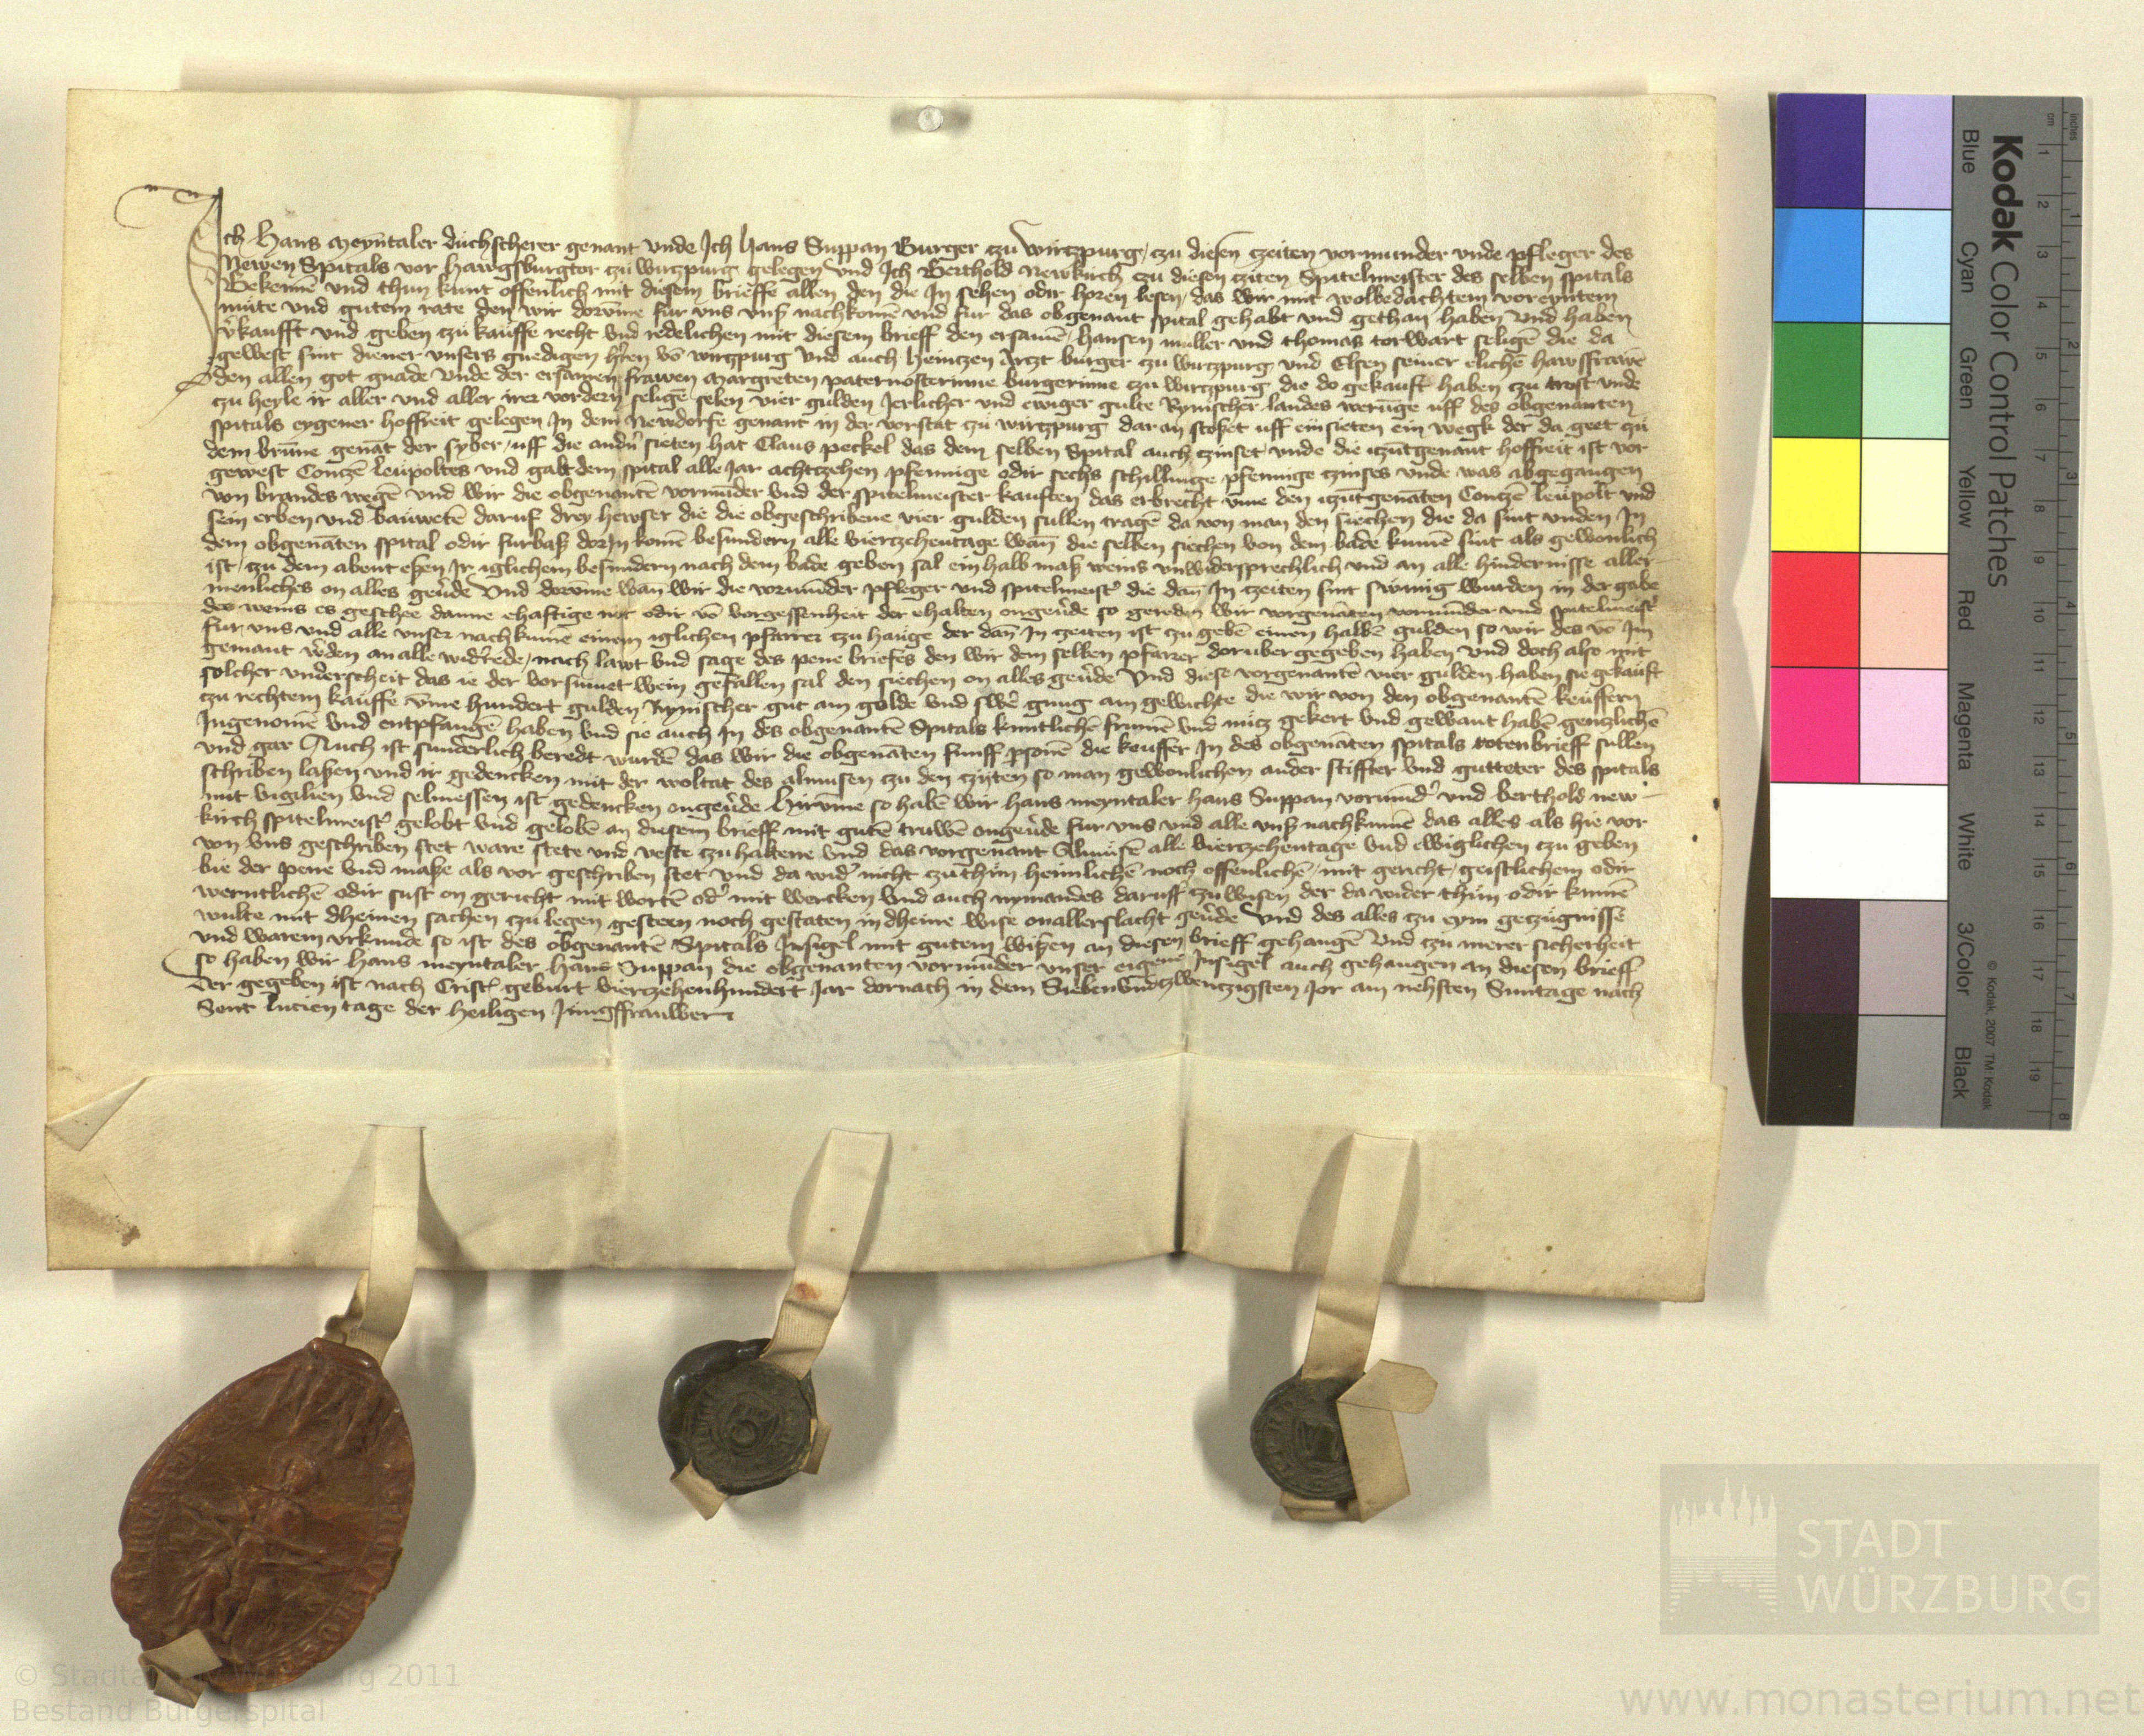 Ich Hans Meyntaler duchscherer genant vnde Ich Hans Suppan Burger czu wirtzpurg / czu diesen czeiten vormunder vnde pfleger des
Newen Spitals vor Hawgsburgtor czu wirtzpurg gelegen Vnd Ich Berthold Newkirch czu diesen cziten Spitelmeister des selben spitals
Bekennē vnd thun kunt offenlich mit diesem brieffe allen den die Jn sehen odir horen lesen / das wir mit wolbedachtem voreyntem
mute vnd gutem rate den wir dorūme fur vns vnß nachkomē vnd fur das obgenant spital gehabt vnd gethan haben Vnd haben
v̓kaufft vnd geben czu kauffe recht vnd redelichen mit diesem brieff den ersamē / Hansen muller vnd Thomas torwart seligē die da
gewest sint diener vnsers gnedigen hr̄ren vō wirtzpurg vnd auch Heintzen Artzt burger zu wirtzpurg vnd Elsen seiner elichē hawsfrawē
den allen got gnade Vnde der ersamen frawen Margreten paternosterinne burgerinne czu wirtzpurg die do gekauft haben czu trost vnde
zu heyle ir aller vnd aller irer vordern seligē selen vier gulden Jerlicher vnd ewiger gulte Rynischer landes werūge uff des obgenanten
spitals eygener hoffreit gelegen Jn dem Newdorfe genant in der vorstat zu wirtzpurg dar an stoßet uff ein sieten ein wegk der da geet zu
dem brūne genāt der syber / uff die andn̓ sieten hat Claus peckel das dem selben Spital auch czinset vnde die itzutgenant hoffreit ist vor
gewest Contzē leupoltes vnd gabt dem spital alle Jar achtzehen pfennige odir sechs schillinge pfennige czinses vnde was abgegangen
von brandes wegē vnd wir die obgenantē vormūder vnd der spitelmeister kauften das erbrecht vme den itzutgenāten Contzē leupolt vnd
sein erben vnd bauwetē daruf drey hewser die die obgeschribene vier gulden sullen tragē da von man den siechen die da sint vnden Jn
dem obgenāten spital odir furbaß dorJn komē besundern alle viertzehentage wañ die selben siechen von dem bade kumē sint als gewonlich
ist / zu dem abent eßen Jr iglichem besundern nach dem bade geben sal ein halb maß weins vnwidersprechlich vnd an alle hindernisse aller
menliches on alles gev̓de Vnd dorūme wañ wir die vormūder pfleger vnd spitelmeist̓ die dañ Jn zeiten sint sumig wurden in der gabe
des weins es geschee danne ehaftige not odir vō vorgessenheit der ehalten ongev̓de so gereden wir vorgenāten vormūder vnd spitelmeist̓
fur vns vnd alle vnser nachkumē einem iglichen pfarrer czu hauge der dañ Jn zeiten ist zu gebē einen halbē gulden so wir des vō Jm
gemant w̓den an alle wid̓rede / nach lawt vnd sage des pene briefes den wir dem selben pfarrer dorubergegeben haben Vnd doch also mit
solcher vnderscheit das ie der vorsumet wein gefallen sal den siechen on alles gev̓de Vnd diese vorgenantē vier gulden haben sie gekauft
czu rechtem kauffe vme hundert gulden Rynischer gut am golde vnd swer̄ gnug am gewichte die wir von den obgenantē keuffern
Jngenomē vnd entpfangē haben vnd sie auch Jn des obgenantē Spitals kuntlichē frumē vnd nucz gekert vnd gewant habē gentzlichē
vnd gar Auch ist sunderlich beredt wurdē das wir die obgenāten funff psonē die keuffer Jn des obgenāten spitals totenbrieff sullen
schriben laßen vnd ir gedencken mit der woltat des almusen czu den czyten so man gewonlichen ander stiffter vnd gutteter des spitals
mit vigilien vnd selmessen ist gedencken ongev̓de Hirūme so habē wir Hans meyntaler Hans Suppan vormūd̓ vnd Berthold new
kirch spitelmeist̓ gelobt vnd gelobē an diesem brieff mit gutē truwē ongev̓de fur vns vnd alle vnß nachkumē das alles als hie vor
von vns geschriben stet ware stete vnd veste czu haltene Vnd das vorgenant Almusē alle viertzehentage vnd ewiglichen czu geben
bie der pene vnd maße als vor geschriben stet vnd da wid̓ nicht zu thun heimlichē noch offenlichē / mit gericht / geistlichem odir
werntlichē odir sust on gericht mit wortē od̓ mit wercken Vnd auch nymandes daruff zu wisen der da wider thun odir kumē
wulte mit dheinen sachen czu legen gesteen noch gestaten in dheine wise on allerslacht gev̓de Vnd des alles zu eym getzugnisse
vnd warem vrkunde so ist des obgenantē Spitals Jnsigel mit gutem wißen an diesen brieff gehangē Vnd czu merer sicherheit
so haben wir Hans meyntaler Hans Suppan die obgenanten vormūder vnser eigene Jnsigel auch gehangen an diesen brieff
Der gegeben ist nach Crist̓ geburt viertzehenhundert Jar dornach in dem Siebenvndzwentzigsten Jor am nehsten Suntage nach
Sent lucien tage der heiligen Jungffrauwen
Kodak Color Control Patches
Blue Cyan Green Yellow Red Magenta White 3/Color Black
© Kodak, 2007 TM: Kodak
inches 1 2 3 4 5 6 7 8
cm 1 2 3 4 5 6 7 8 9 10 11 12 13 14 15 16 17 18 19
STADT
WÜRZBURG
© Stadtarchiv Würzburg 2011
Bestand Bürgerspital
www.monasterium.net